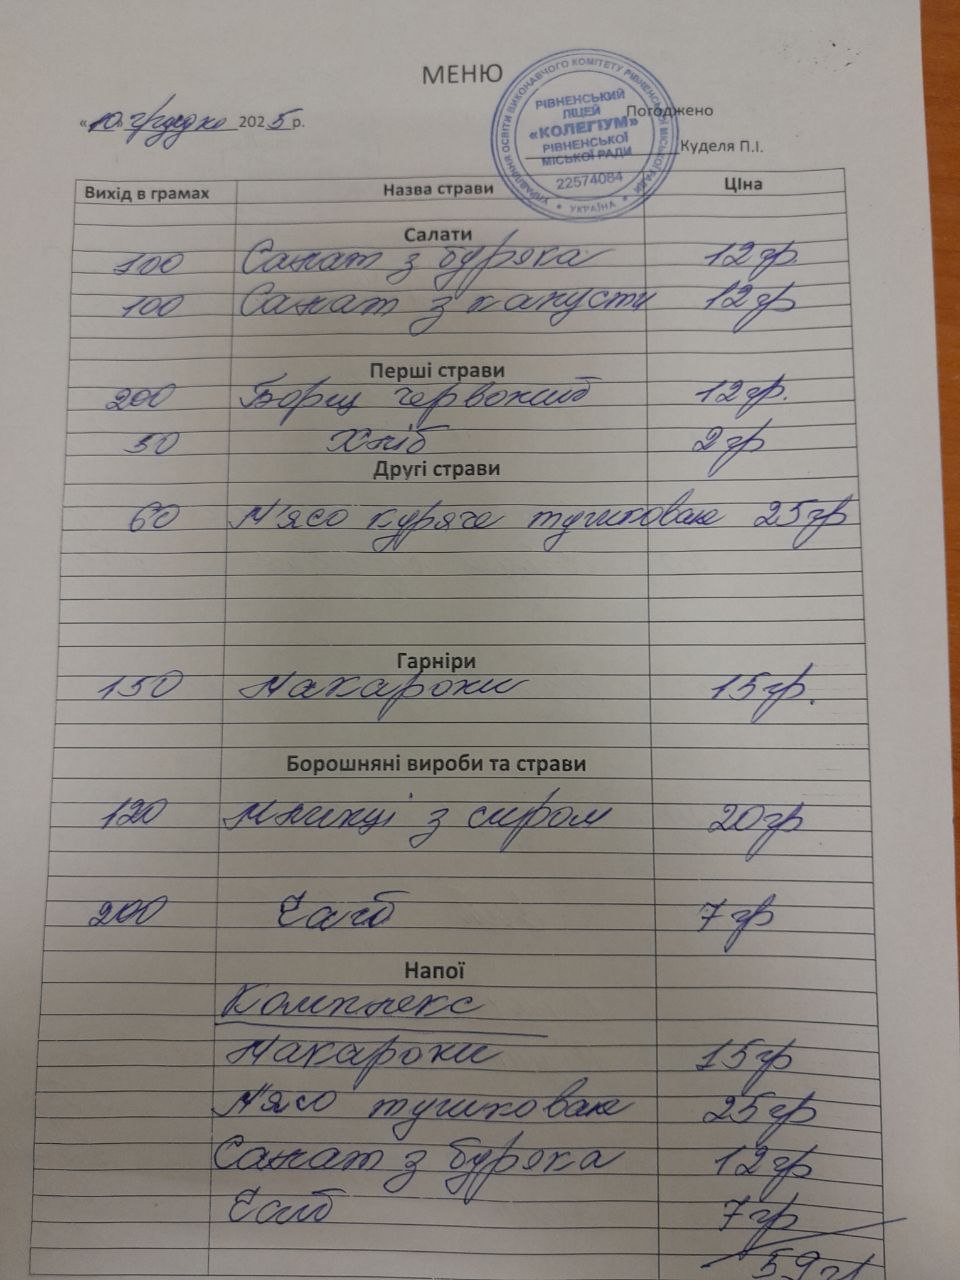 МЕНЮ
«10» грудня 2025 р.
Погоджено
Куделя П.І.
УПРАВЛІННЯ ОСВІТИ ВИКОНАВЧОГО КОМІТЕТУ РІВНЕНСЬКОЇ МІСЬКОЇ РАДИ
* УКРАЇНА *
РІВНЕНСЬКИЙ
ЛІЦЕЙ
«КОЛЕГІУМ»
РІВНЕНСЬКОЇ
МІСЬКОЇ РАДИ
22574084
Вихід в грамах Назва страви Ціна
Салати
100 Салат з буряка 12гр
100 Салат з капусти 12гр
Перші страви
200 Борщ червоний 12гр.
30 Хліб 2гр
Другі страви
60 М'ясо куряче тушковане 25гр
Гарніри
150 Макарони 15гр.
Борошняні вироби та страви
120 Млинці з сиром 20гр
200 Чай 7гр
Напої
Комплекс
Макарони 15гр
М'ясо тушковане 25гр
Салат з буряка 12гр
Чай 7гр
59гр